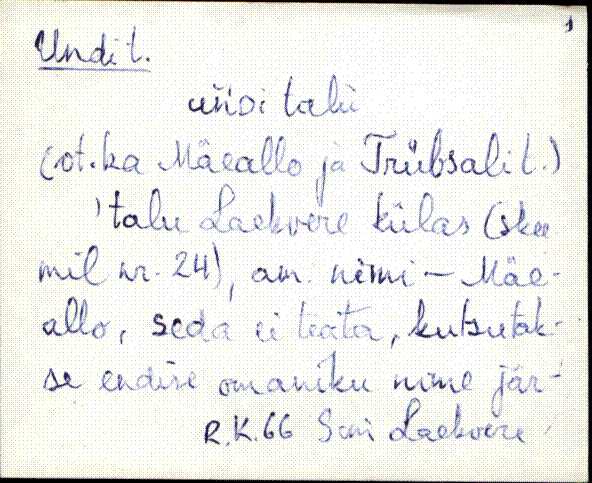 1
Undi t.
uńdi talu
(vt. ka Mäeallo ja Trübsali t.)
'talu Laekvere külas (skee
mil nr. 24), am. nimi – Mäe-
allo, seda ei teata, kutsutak-
se endise omaniku nime jär-
R.K. 66 Sim Laekvere